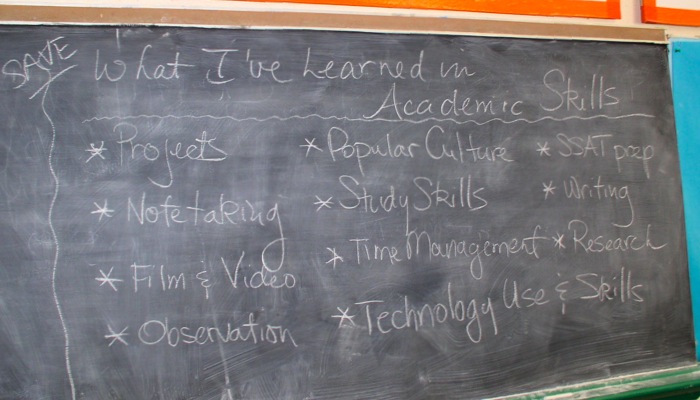 SAVE
What I've Learned in
Academic Skills
* Projects
* Notetaking
* Film & Video
* Observation
* Popular Culture
* Study Skills
* Time Management
* Technology Use & Skills
* SSAT prep
* Writing
* Research